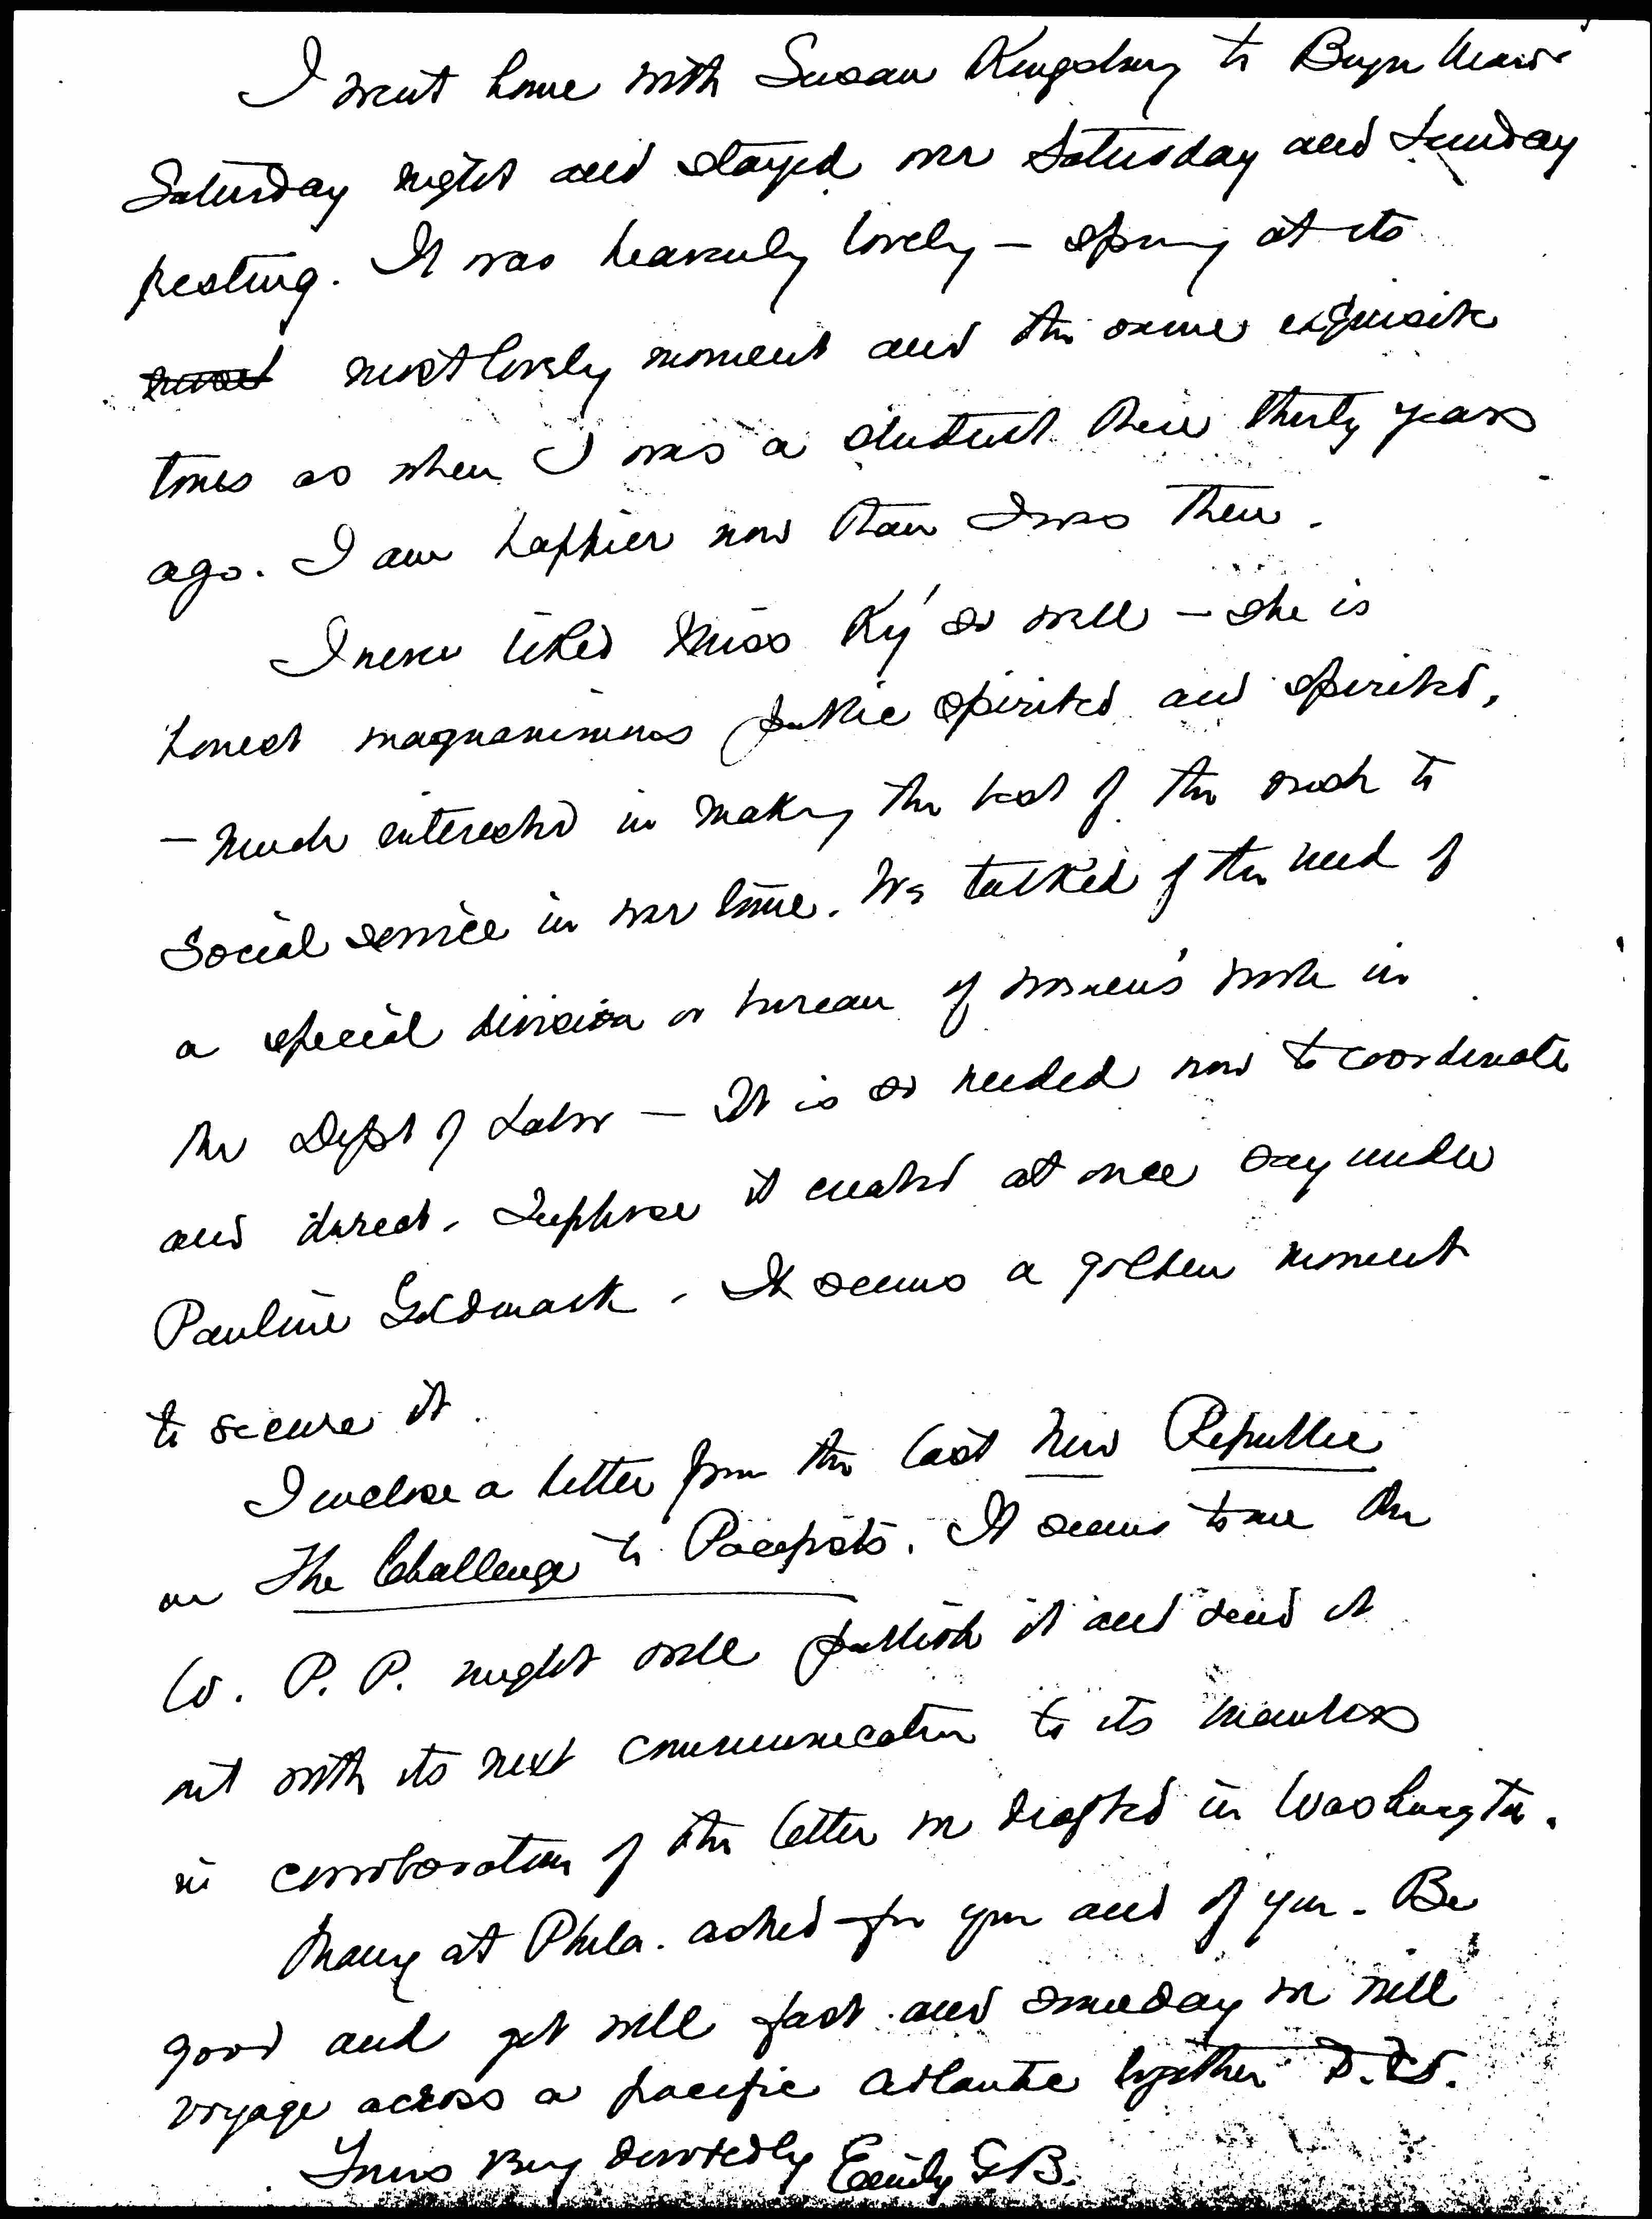 I went home with Susan Kingsbury to Bryn Mawr
Saturday night and stayed over Saturday and Sunday
resting. It was heavenly lovely – spring at its
most most lovely moment and the same exquisite
tones as when I was a student there thirty years
ago. I am happier now than I was then.
I never liked Miss Ky so well – she is
honest magnanimous public spirited and spirited,
– much interested in making the best of the
social service in war time. We talked of the need of
a special division or bureau of women's work in
the Dept of Labor – It is so needed now to coordinate
and direct. Suppose it created at once say under
Pauline Goldmark. It seems a golden moment
to secure it.
I enclose a letter from the last New Republic
on The Challenge to Pacifists. It seems to me the
W. P. P. might well publish it and send it
out with its next communication to its members
in corroboration of the letter we drafted in Washington.
Many at Phila. asked for you and of you. Be
good and get well fast and someday we will
voyage across a pacific Atlantic together D.V.
Yours very devotedly Emily G B.